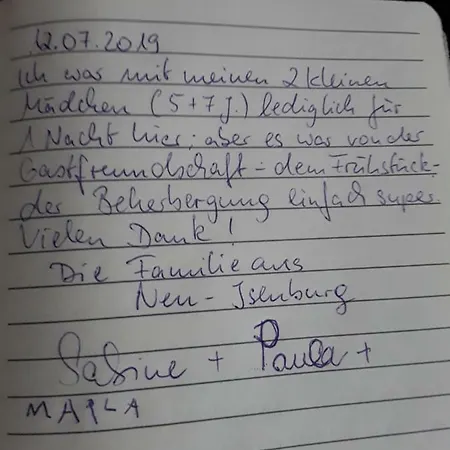 12.07.2019
Ich war mit meinen 2 kleinen
Mädchen (5+7 J.) lediglich für
1 Nacht hier; aber es war von der
Gastfreundschaft - dem Frühstück -
der Beherbergung einfach super.
Vielen Dank!
Die Familie aus
Neu-Isenburg
Sabine + Paula +
MARLA